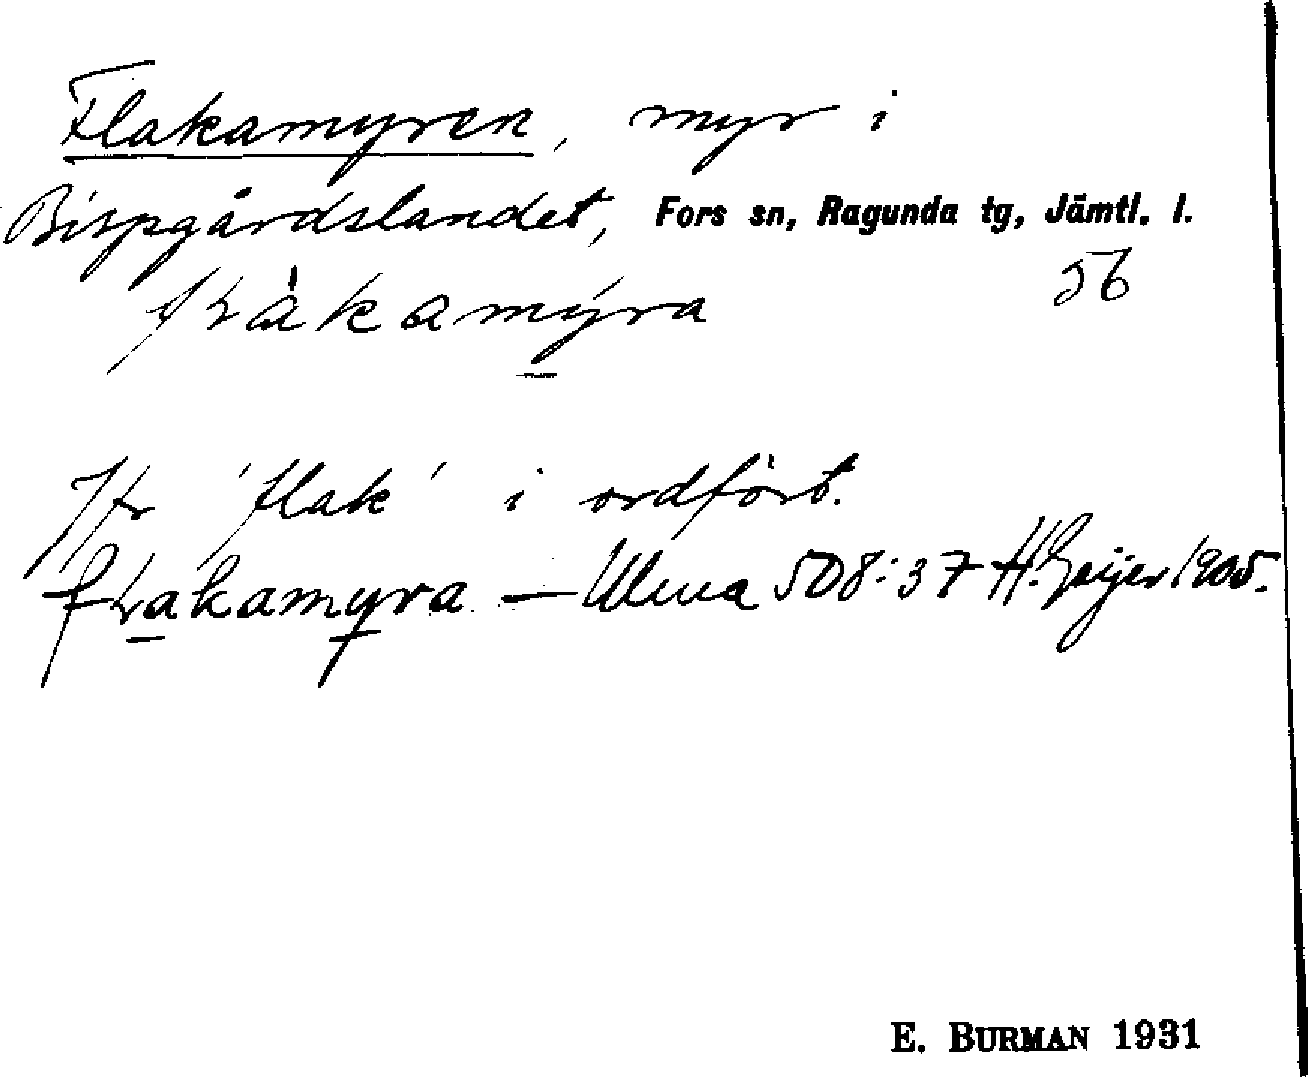 Flakamyren, myr i
Bispgårdslandet, Fors sn, Ragunda tg, Jämtl. l.
56
Jfr 'flak' i ordfört.
508:37 H. Geijer 1905.
E. BURMAN 1931